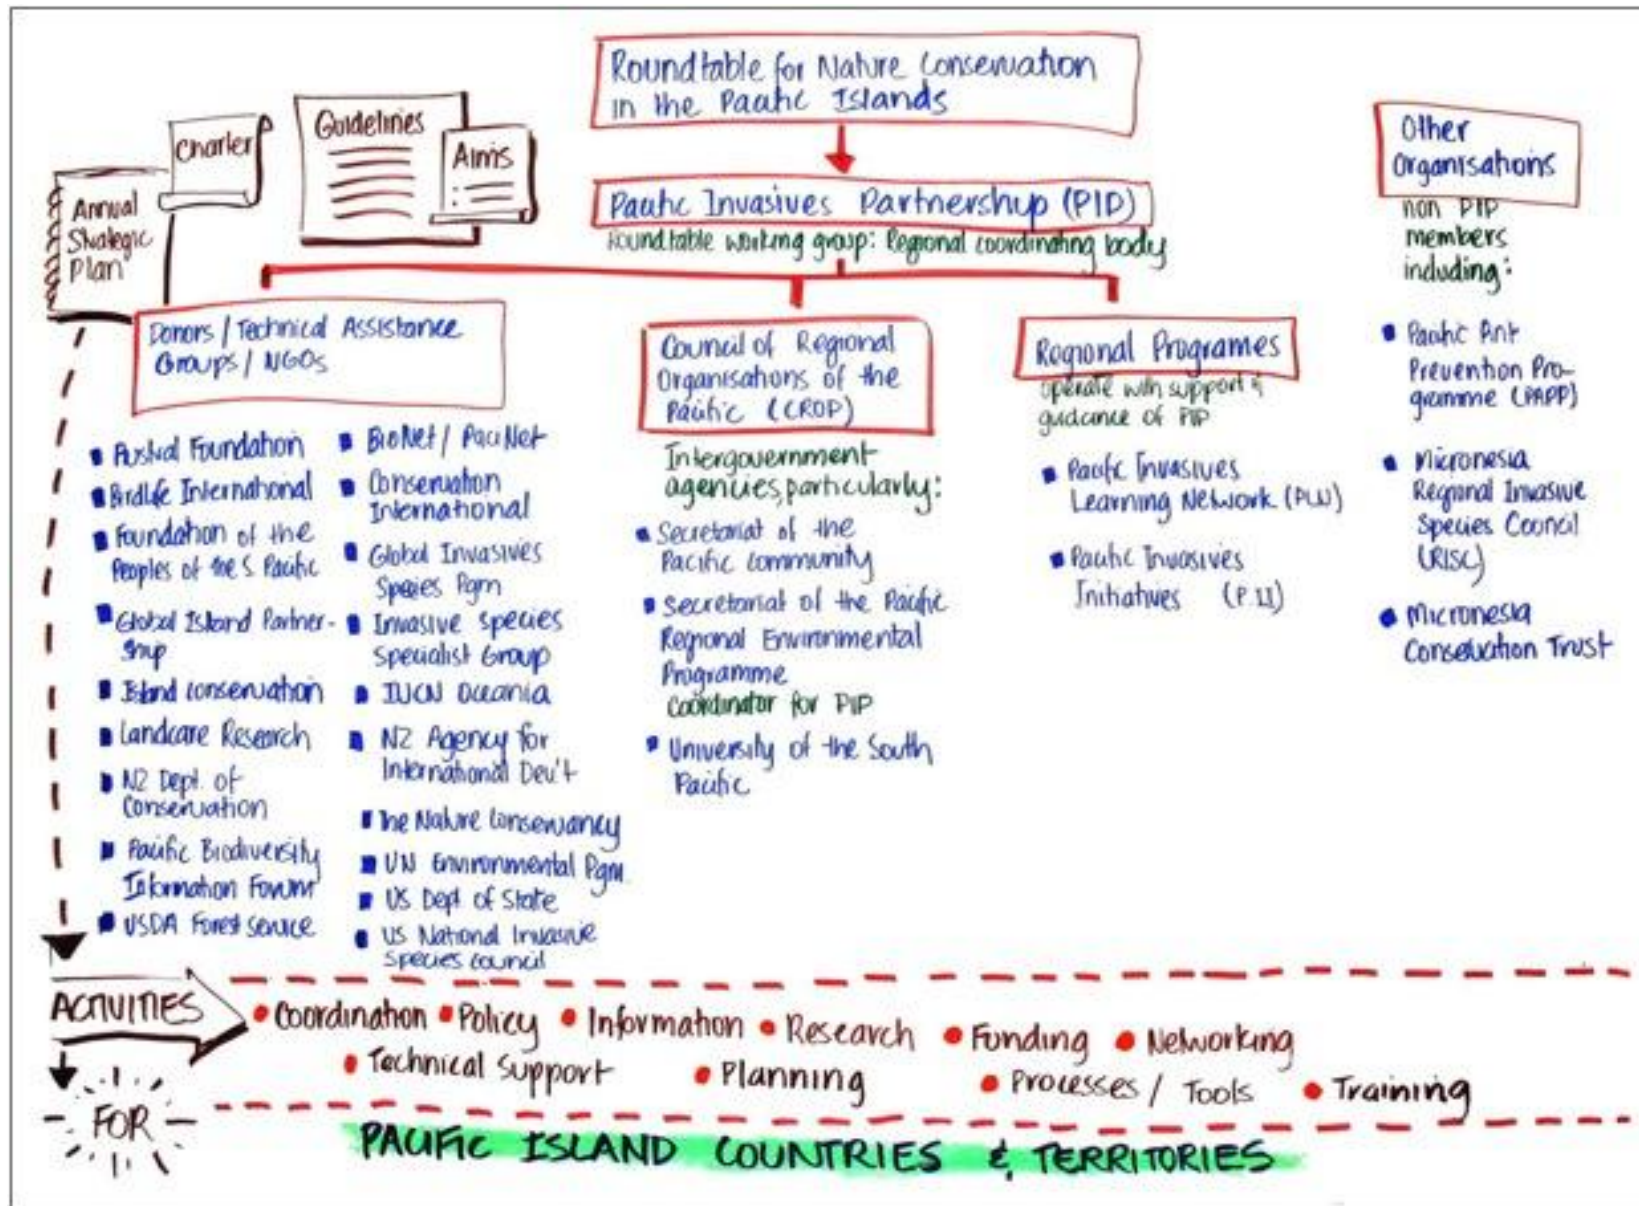 Roundtable for Nature Conservation
in the Pacific Islands
Charter
Guidelines
Aims
Annual
Strategic
Plan
Pacific Invasives Partnership (PIP)
Roundtable working group: Regional coordinating body
Other
Organisations
non PIP
members
including:
Pacific Ant
Prevention Pro-
gramme (PAPP)
Micronesia
Regional Invasive
Species Council
(RISC)
Micronesia
Conservation Trust
Donors / Technical Assistance
Groups / NGOs
Austral Foundation
Birdlife International
Foundation of the
Peoples of the S. Pacific
Global Island Partner-
ship
Island conservation
Landcare Research
NZ Dept. of
Conservation
Pacific Biodiversity
Information Forum
USDA Forest Service
BioNet / PaciNet
Conservation
International
Global Invasives
Species Pgm
Invasive Species
Specialist Group
IUCN Oceania
NZ Agency for
International Dev't
The Nature Conservancy
UN Environmental Pgm
US Dept. of State
US National Invasive
Species Council
Council of Regional
Organisations of the
Pacific (CROP)
Intergovernment
agencies, particularly:
Secretariat of the
Pacific Community
Secretariat of the Pacific
Regional Environmental
Programme
Coordinator for PIP
University of the South
Pacific
Regional Programes
operate with support &
guidance of PIP
Pacific Invasives
Learning Network (PLN)
Pacific Invasives
Initiatives (PII)
ACTIVITIES
Coordination Policy Information Research Funding Networking
Technical Support Planning Processes / Tools Training
FOR
PACIFIC ISLAND COUNTRIES & TERRITORIES